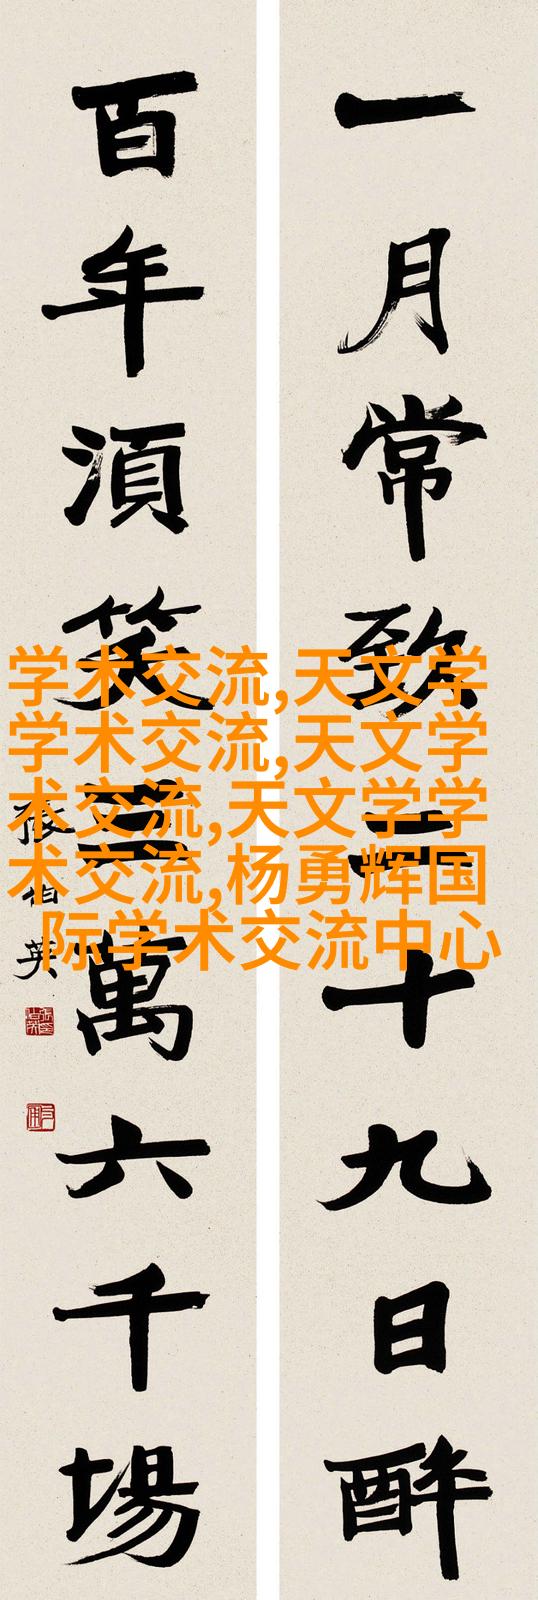 一月常致二十九日醉
百年湏笑三萬六千場
張伯英
学术交流,天文学
学术交流,天文学
术交流,天文学学
术交流,杨勇辉国
际学术交流中心